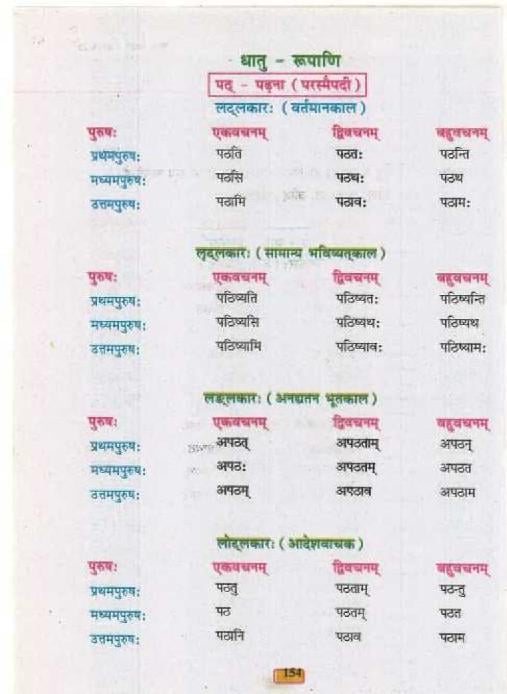 धातु - रूपाणि
पठ् - पढ़ना ( परस्मैपदी )
लट्लकारः ( वर्तमानकाल )
पुरुषः एकवचनम् द्विवचनम् बहुवचनम्
प्रथमपुरुषः पठति पठतः पठन्ति
मध्यमपुरुषः पठसि पठथः पठथ
उत्तमपुरुषः पठामि पठावः पठामः
लृट्लकारः ( सामान्य भविष्यत्काल )
पुरुषः एकवचनम् द्विवचनम् बहुवचनम्
प्रथमपुरुषः पठिष्यति पठिष्यतः पठिष्यन्ति
मध्यमपुरुषः पठिष्यसि पठिष्यथः पठिष्यथ
उत्तमपुरुषः पठिष्यामि पठिष्यावः पठिष्यामः
लङ्लकारः ( अनद्यतन भूतकाल )
पुरुषः एकवचनम् द्विवचनम् बहुवचनम्
प्रथमपुरुषः अपठत् अपठताम् अपठन्
मध्यमपुरुषः अपठः अपठतम् अपठत
उत्तमपुरुषः अपठम् अपठाव अपठाम
लोट्लकारः ( आदेशवाचक )
पुरुषः एकवचनम् द्विवचनम् बहुवचनम्
प्रथमपुरुषः पठतु पठताम् पठन्तु
मध्यमपुरुषः पठ पठतम् पठत
उत्तमपुरुषः पठानि पठाव पठाम
154